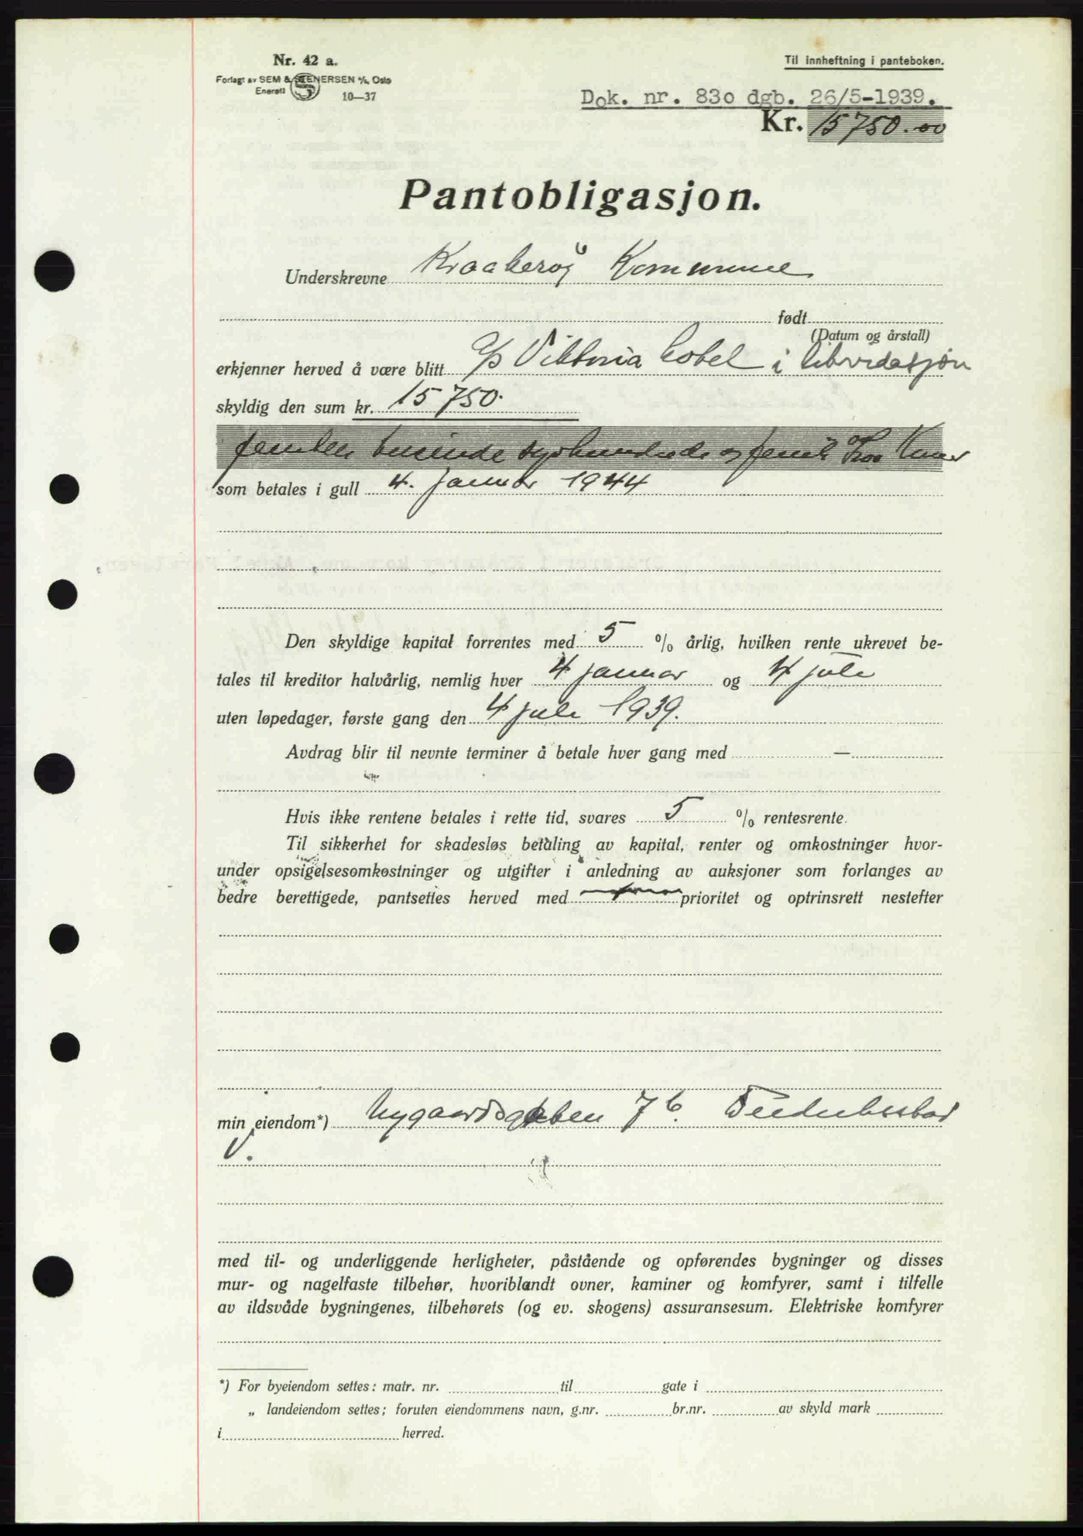 Nr. 42 a.
Til innheftning i panteboken.
Forlagt av SEM & STENERSEN A/S, Oslo
Enerett
10—37
Dok. nr. 830 dgb. 26/5-1939.
Kr. 15750.00
Pantobligasjon.
Underskrevne Kraakerøy Kommune
født
(Datum og årstall)
erkjenner herved å være blitt Viktoria Hotel i likvidasjon
skyldig den sum kr. 15750.
femten tusinde syvhundrede og femti Kroner
som betales i gull 4. januar 1944
Den skyldige kapital forrentes med 5 % årlig, hvilken rente ukrevet be-
tales til kreditor halvårlig, nemlig hver 4 januar og 4 juli
uten løpedager, første gang den 4 juli 1939.
Avdrag blir til nevnte terminer å betale hver gang med —
Hvis ikke rentene betales i rette tid, svares 5 % rentesrente.
Til sikkerhet for skadesløs betaling av kapital, renter og omkostninger hvor-
under opsigelsesomkostninger og utgifter i anledning av auksjoner som forlanges av
bedre berettigede, pantsettes herved med prioritet og optrinsrett nestefter
min eiendom*) Nygaardsgaten 7b Fredrikstad
V.
med til- og underliggende herligheter, påstående og opførendes bygninger og disses
mur- og nagelfaste tilbehør, hvoriblandt ovner, kaminer og komfyrer, samt i tilfelle
av ildsvåde bygningenes, tilbehørets (og ev. skogens) assuransesum. Elektriske komfyrer
*) For byeiendom settes: matr. nr. til gate i
„ landeiendom settes; foruten eiendommens navn, g.nr. br.nr. av skyld mark
i herred.